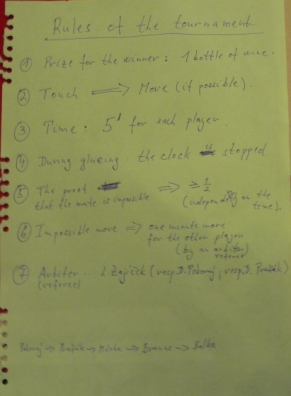 Rules of the tournament
① Prize for the winner: 1 bottle of wine.
② Touch ⟹ Move (if possible).
③ Time: 5' for each player.
④ During glueing the clock stopped
⑤ The proof ⟹ ≥ 1/2
that the mate is impossible (independently on the
time).
⑥ Impossible move ⟹ one minute more
for the other player
(by an arbiter
referee)
⑦ Arbiter .. Zajíček (resp. D. Pokorný, resp. D. Pražák)
(referee)